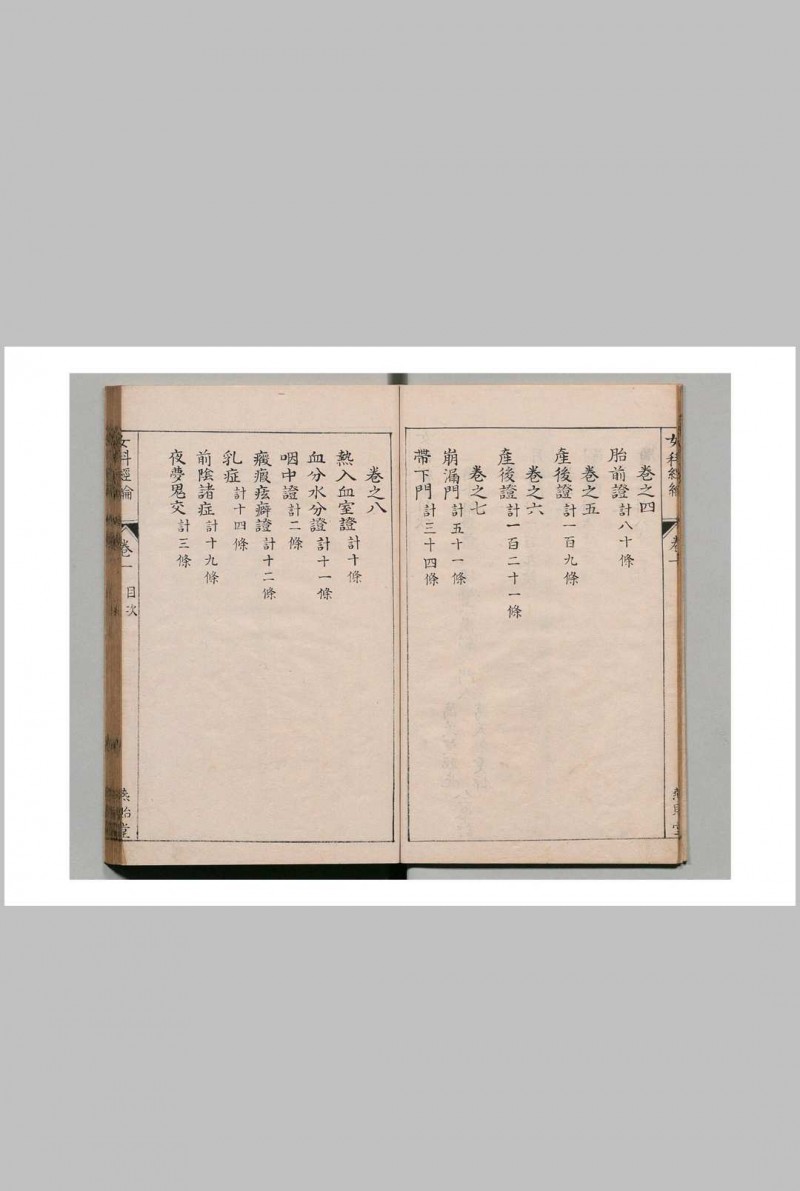 卷之四
胎前證 計八十條
卷之五
產後證 計一百九條
卷之六
產後證 計一百二十一條
卷之七
崩漏門 計五十一條
帶下門 計三十四條
卷之八
熱入血室證 計十條
血分水分證 計十一條
咽中證 計二條
癥瘕痃癖證 計十二條
乳症 計十四條
前陰諸症 計十九條
夜夢鬼交 計三條
女科經論
卷一 目次